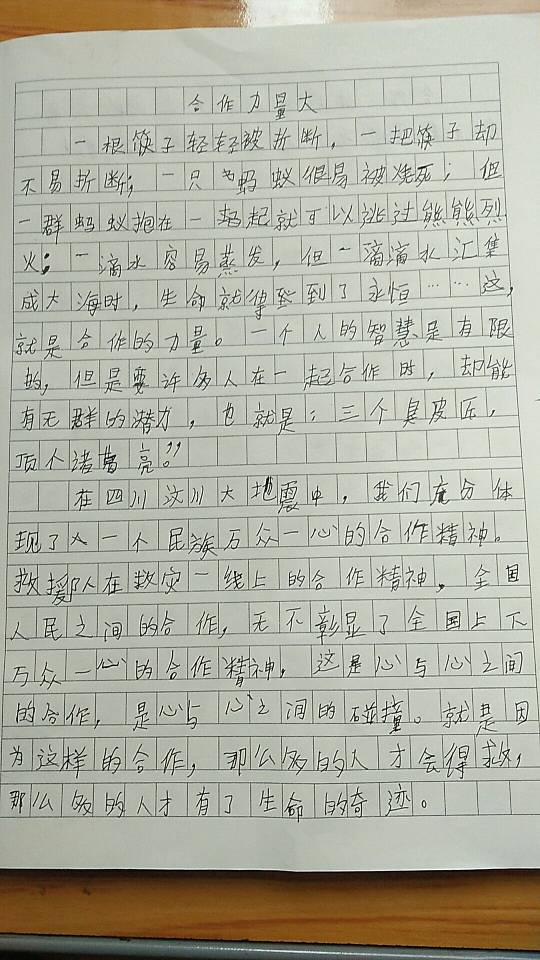 合作力量大
一根筷子轻轻被折断，一把筷子却
不易折断；一只蚂蚁很易被烧死；但
一群蚂蚁抱在一起就可以逃过熊熊烈
火；一滴水容易蒸发，但一滴滴水汇集
成大海时，生命就得到了永恒……这，
就是合作的力量。一个人的智慧是有限
的，但是要许多人在一起合作时，却能
有无群的潜力，也就是：三个臭皮匠，
顶个诸葛亮。”
在四川汶川大地震中，我们充分体
现了一个民族万众一心的合作精神。
救援队在救灾一线上的合作精神，全国
人民之间的合作，无不彰显了全国上下
万众一心的合作精神，这是心与心之间
的合作，是心与心之间的碰撞。就是因
为这样的合作，那么多的人才会得救，
那么多的人才有了生命的奇迹。